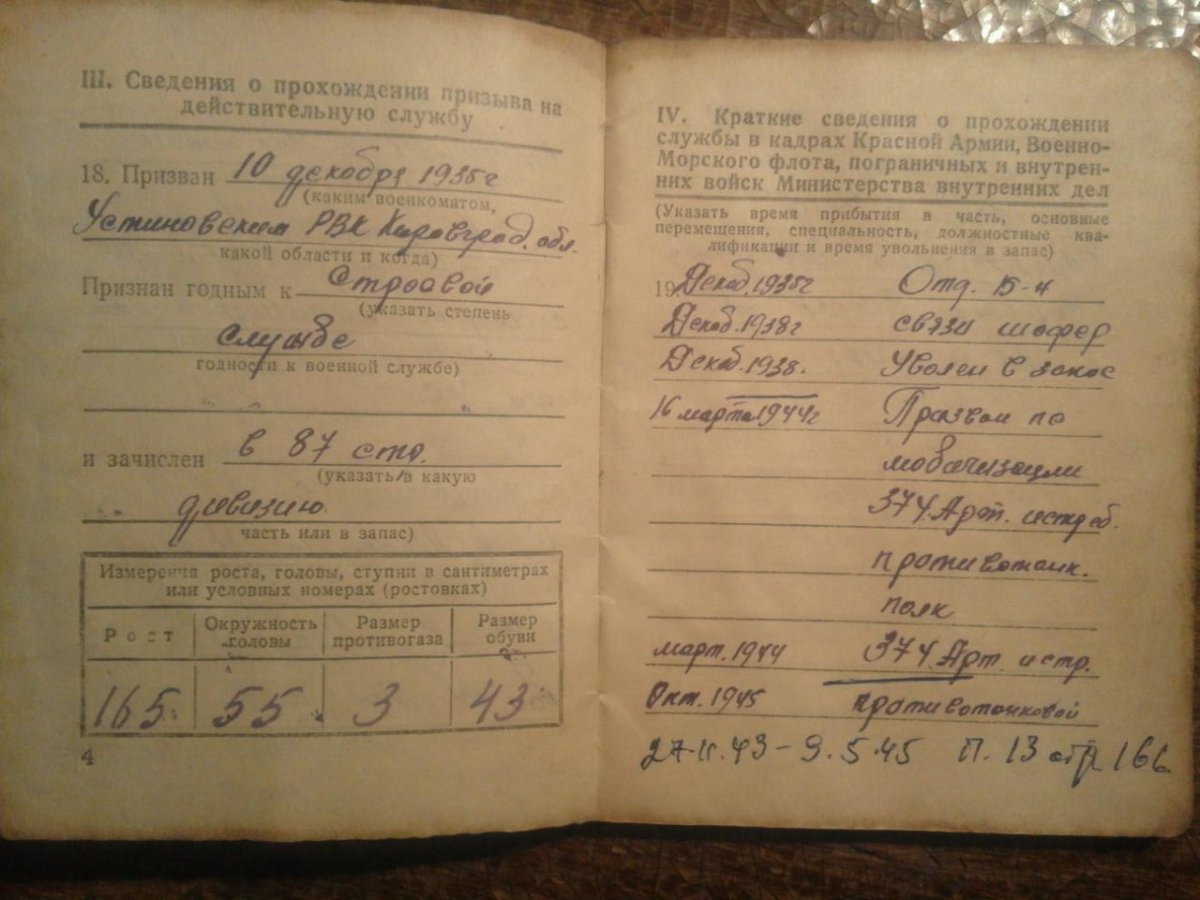 III. Сведения о прохождении призыва на
действительную службу
18. Призван 10 декабря 1935г
(каким военкоматом,
Устиновским РВК Кировград. обл.
какой области и когда)
Признан годным к строевой
(указать степень
службе
годности к военной службе)
и зачислен в 87 стр.
(указать в какую
дивизию
часть или в запас)
Измерения роста, головы, ступни в сантиметрах
или условных номерах (ростовках)
Рост
Окружность
головы
Размер
противогаза
Размер
обуви
165 55 3 43
4
IV. Краткие сведения о прохождении
службы в кадрах Красной Армии, Военно-
Морского флота, пограничных и внутрен-
них войск Министерства внутренних дел
(Указать время прибытия в часть, основные
перемещения, специальность, должностные ква-
лификации и время увольнения в запас)
19. Декаб. 1935г Отд. Б-н
Декаб. 1938г связи шофер
Декаб. 1938. Уволен в запас
16 марта 1944г Призван по
мобилизации
374 Арт. истреб.
противотанк.
полк
март. 1944 374 Арт истр.
Окт. 1945 противотанковой
27.11.43 - 9.5.45 П. 13 стр 166